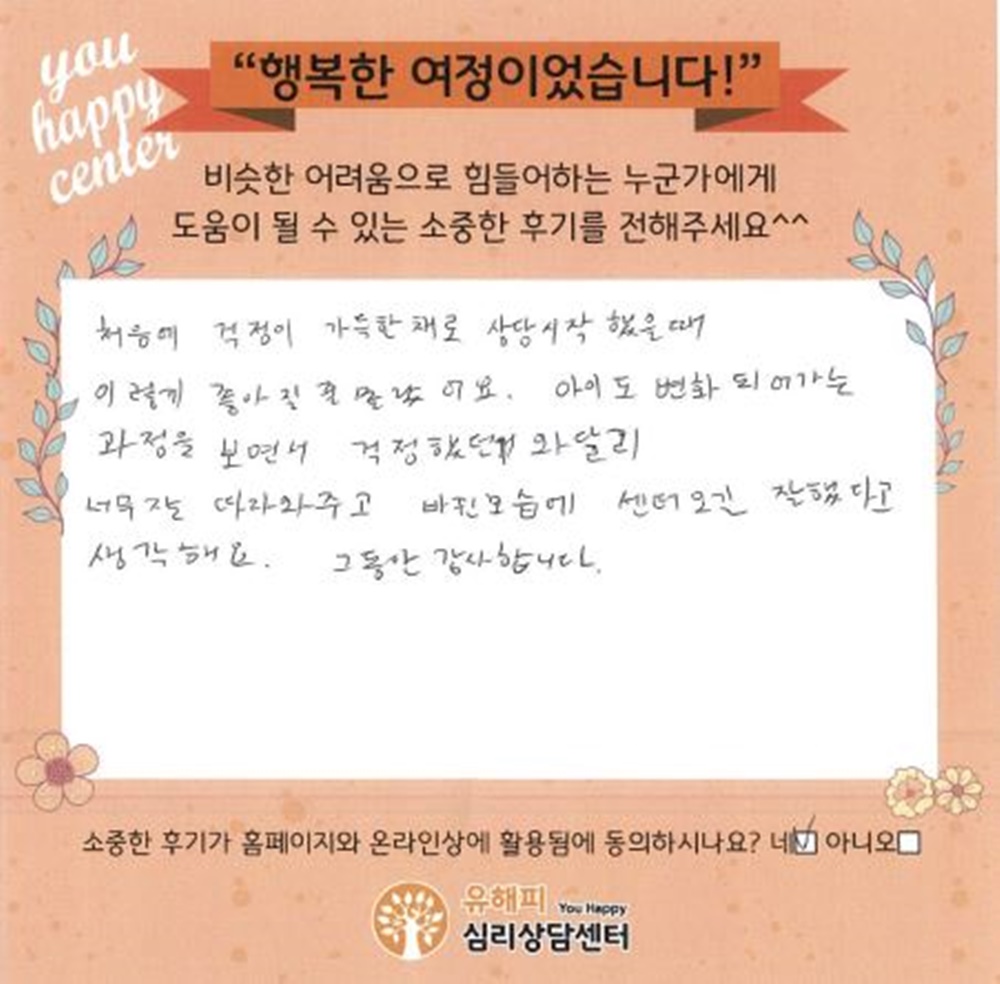 you
happy
center
“행복한 여정이었습니다!”
비슷한 어려움으로 힘들어하는 누군가에게
도움이 될 수 있는 소중한 후기를 전해주세요^^
처음에 걱정이 가득한채로 상담시작 했을때
이렇게 좋아질줄 몰랐어요. 아이도 변화 되어가는
과정을 보면서 걱정했던 와달리
너무 잘 따라와주고 바뀐모습에 센터오길 잘했다고
생각해요. 그동안 감사합니다.
소중한 후기가 홈페이지와 온라인상에 활용됨에 동의하시나요? 네 아니오
유해피 You Happy
심리상담센터